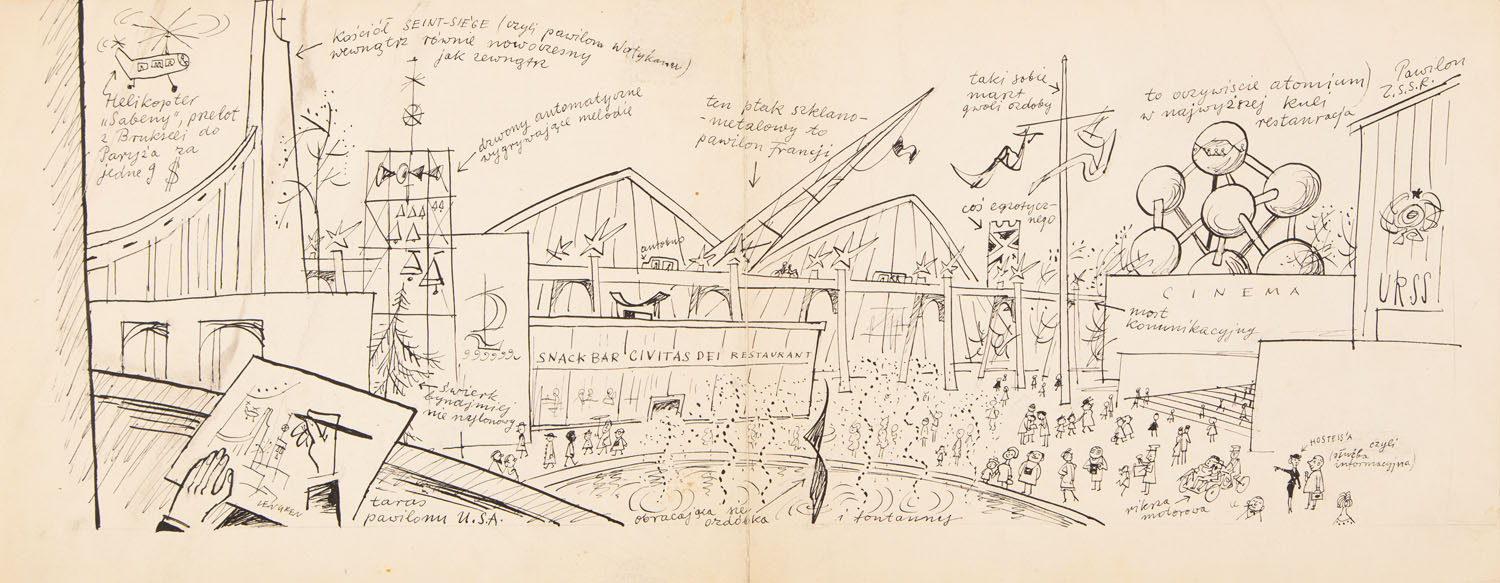 Kościół SEINT-SIÈGE (czyli pawilon Watykanu)
wewnątrz równie nowoczesny
jak zewnątrz
Helikopter
„Sabeny", przelot
z Brukseli do
Paryża za
jedne 9 $
dzwony automatyczne
wygrywające melodie
ten ptak szklano-
-metalowy to
pawilon Francji
taki sobie
maszt
gwoli ozdoby
to oczywiście atomium)
w najwyższej kuli
restauracja
Pawilon
Z.S.S.R.
coś egzotycz-
nego
autobus
CINEMA
URSS
most
komunikacyjny
SNACK BAR CIVITAS DEI RESTAURANT
świerk
bynajmniej
nie nylonowy
LENGREN
taras
pawilonu U.S.A.
obracająca się
ozdóbka
i fontanny
riksza
motorowa
HOSTESS'A
(służba czyli
informacyjna)